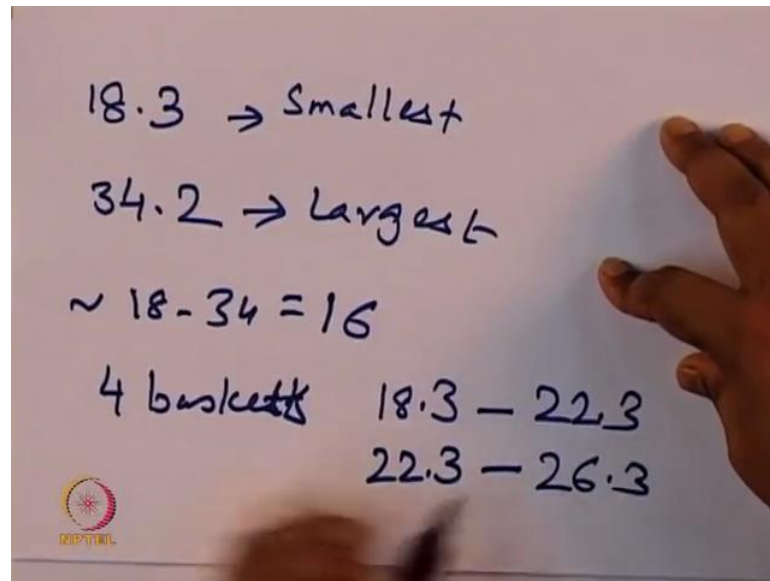 18.3 → Smallest
34.2 → Largest
~ 18 - 34 = 16
4 baskets 18.3 — 22.3
22.3 — 26.3
NPTEL